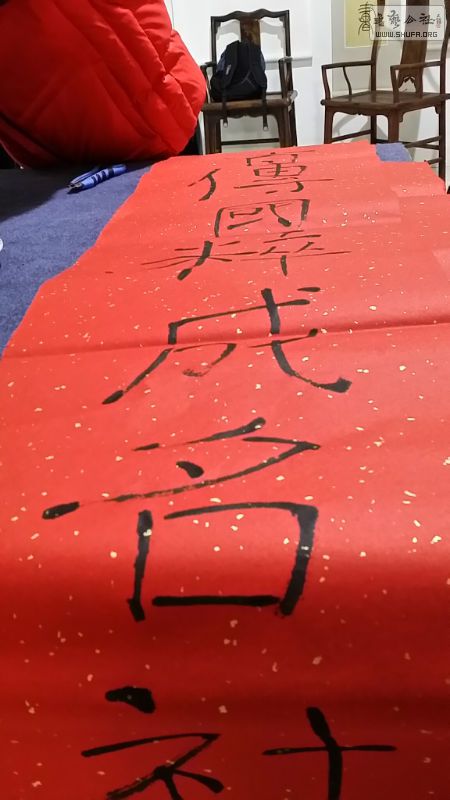 傳國粹成名社
書艺公社
WWW.SHUFA.ORG